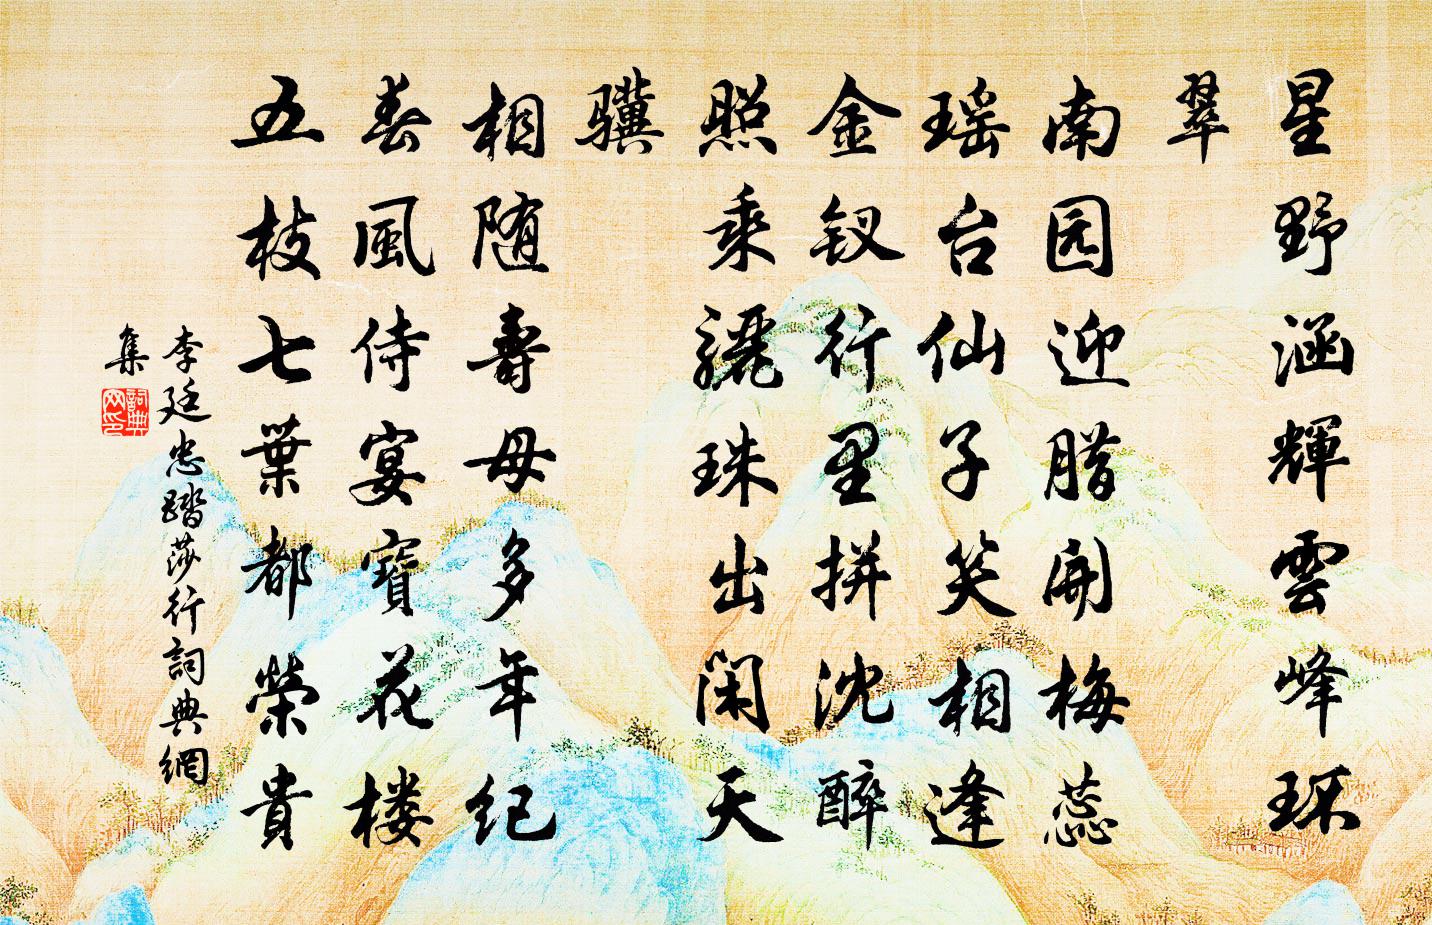 星野涵輝雲峰环
翠
南园迎腊開梅蕊
瑶台仙子笑相逢
金钗行里拼沈醉
照乘驪珠出闲天
骥
相随壽母多年纪
春風侍宴寶花楼
五枝七葉都榮貴
李廷忠踏莎行詞典網
集
詞典網印